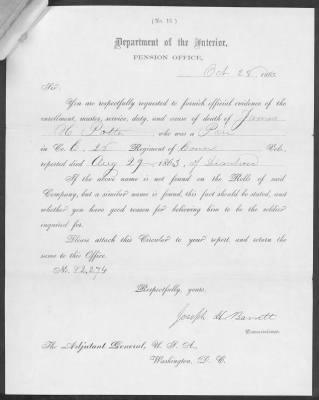 (No. 15.)
Department of the Interior,
PENSION OFFICE,
Oct 28, 1863.
Sir:
You are respectfully requested to furnish official evidence of the
enrollment, muster, service, duty, and cause of death of James
H. Potter who was a Priv
in Co. C. 25 Regiment of Conn Vols.
reported died Aug 29 1863, of
If the above name is not found on the Rolls of said
Company, but a similar name is found, this fact should be stated, and
whether you have good reason for believing him to be the soldier
inquired for.
Please attach this Circular to your report, and return the
same to this Office.
No. 32,274
Respectfully, yours,
Joseph H Barrett
Commissioner.
The Adjutant General, U. S. A.,
Washington, D. C.